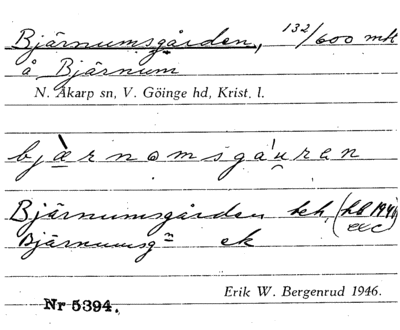 Bjärnumsgården, 132/600 mtl
å Bjärnum
N. Åkarp sn, V. Göinge hd, Krist. l.
bjæ̀rnomsgá'u̯ran
Bjärnumsgården
Bjärnumsg=n ek
Nr 5394.
Erik W. Bergenrud 1946.